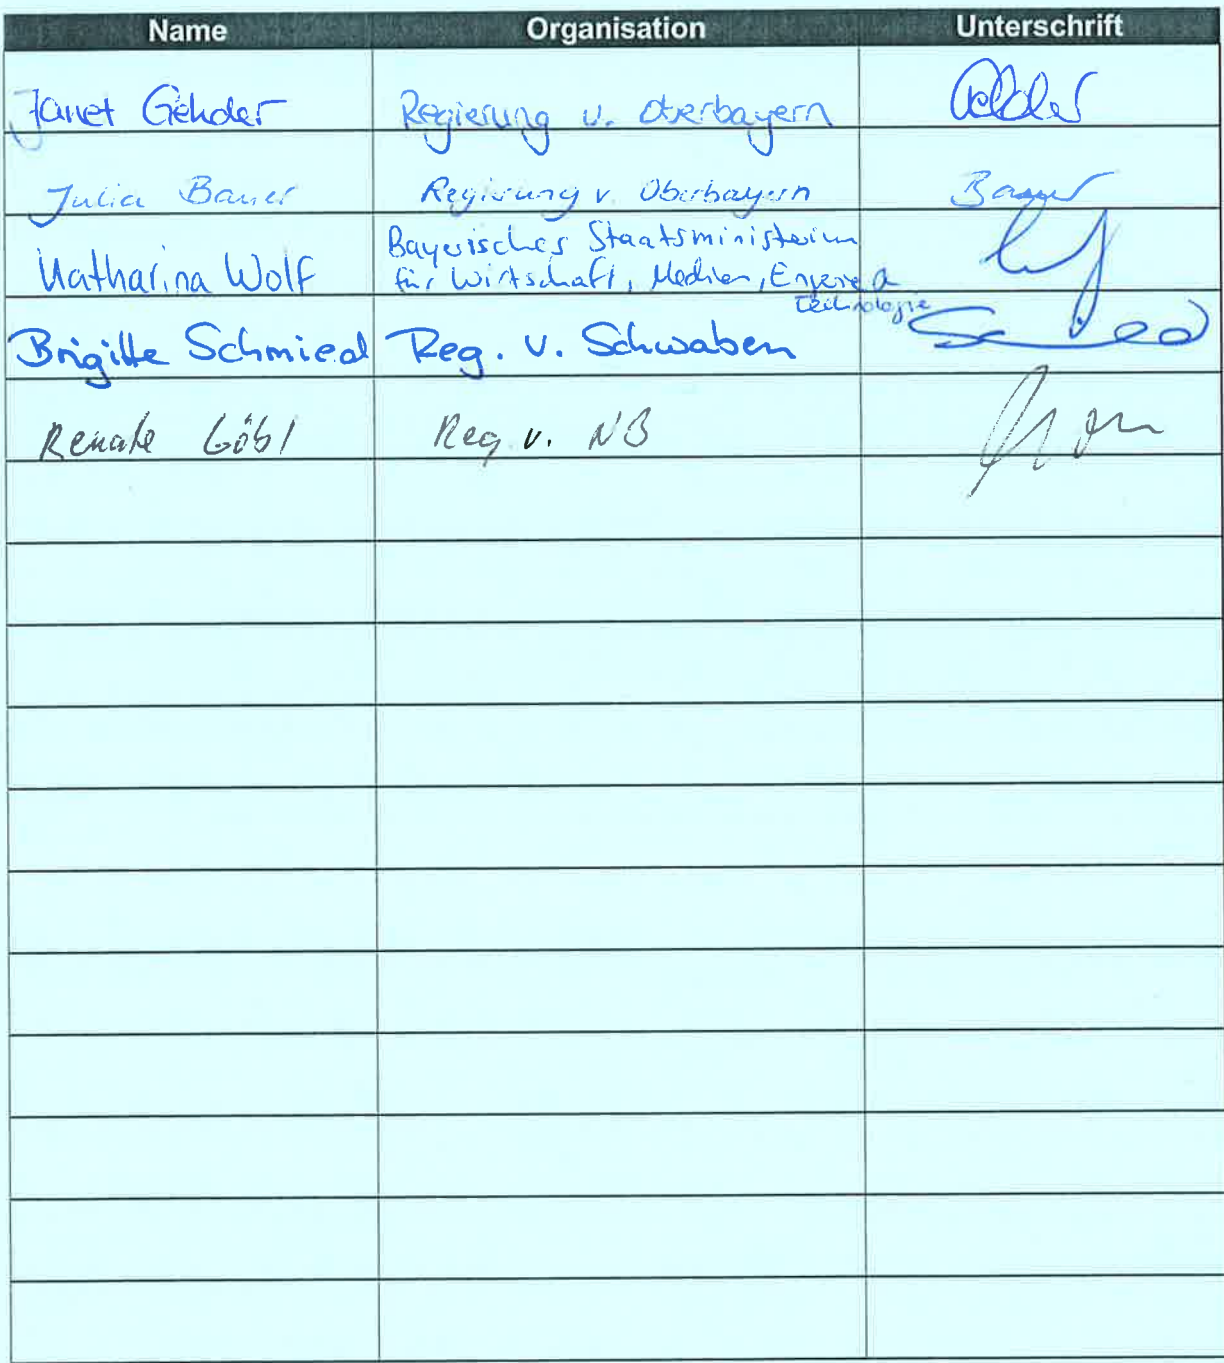 Name Organisation Unterschrift
Janet Gehder Regierung v. Oberbayern
Julia Bauer Regierung v. Oberbayern Bauer
Katharina Wolf Bayerisches Staatsministerium
für Wirtschaft, Medien, Energie &
Technologie
Brigitte Schmied Reg. v. Schwaben Schmied
Renate Göbl Reg. v. NB